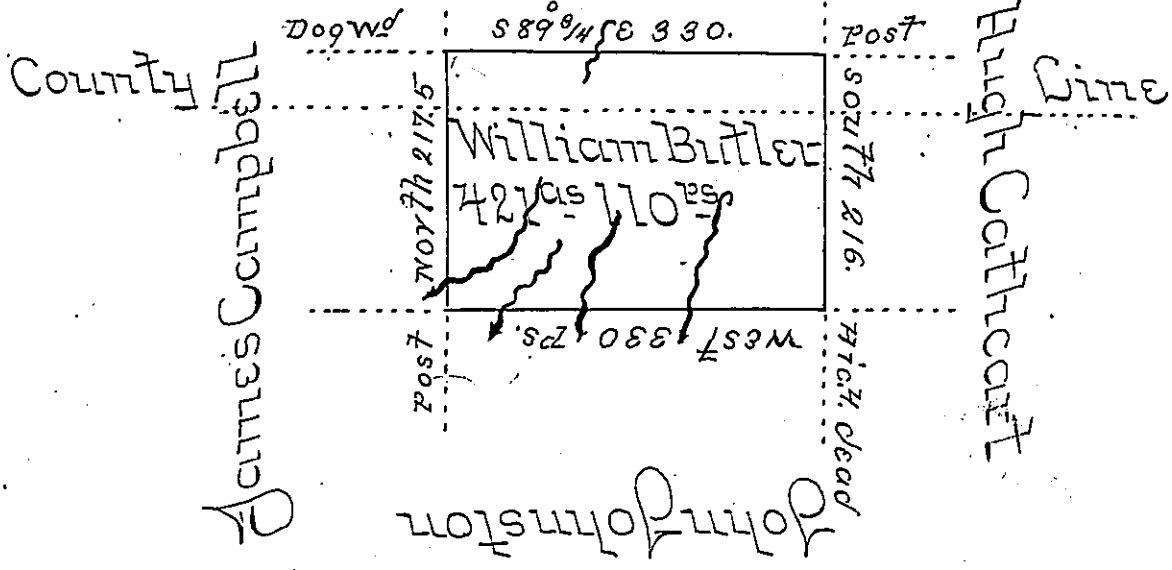 DogWd
S 89°¾ E 330.
Post
County Line
James Campbell
North 217.5
William Butler
421as 110ps
South 216.
Hugh Cathcart
West 330 Ps.
Post
Hic.y. dead
John Johnston